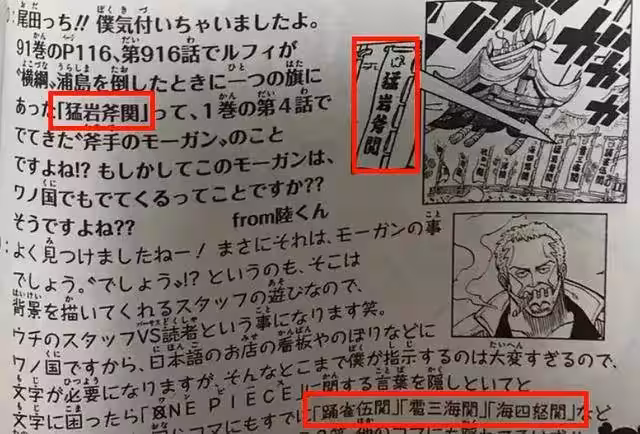 尾田っち!! 僕気付いちゃいましたよ。
91巻のP116、第916話でルフィが
〝横綱〟浦島を倒したときに一つの旗に
あった「猛岩斧関」って、1巻の第4話で
でてきた〝斧手のモーガン〟のこと
ですよね!? もしかしてこのモーガンは、
ワノ国でもでてくるってことですか??
そうですよね??
from陸くん
猛岩斧関
よく見つけましたねー! まさにそれは、モーガンの事
でしょう。〝でしょう〟!? というのも、そこは
背景を描いてくれるスタッフの遊びなので、
ウチのスタッフVS読者という事になります笑。
ワノ国ですから、日本語のお店の看板やのぼりなどに
文字が必要になりますが、そんなとこまで僕が指示するのは大変すぎるので、
文字に困ったら「ONE PIECE」に関する言葉を隠しといてと
コマにもすでに「踊雀伍関」「雹三海関」「海四怒関」など